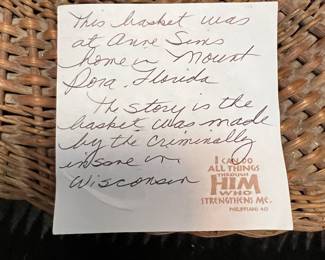 This basket was
at Anne Sims
home in Mount
Dora, Florida
The story is the
basket was made
by the criminally
insane in
Wisconsin
I CAN DO
ALL THINGS
THROUGH
HIM
WHO
STRENGTHENS ME.
PHILIPPIANS 4:13